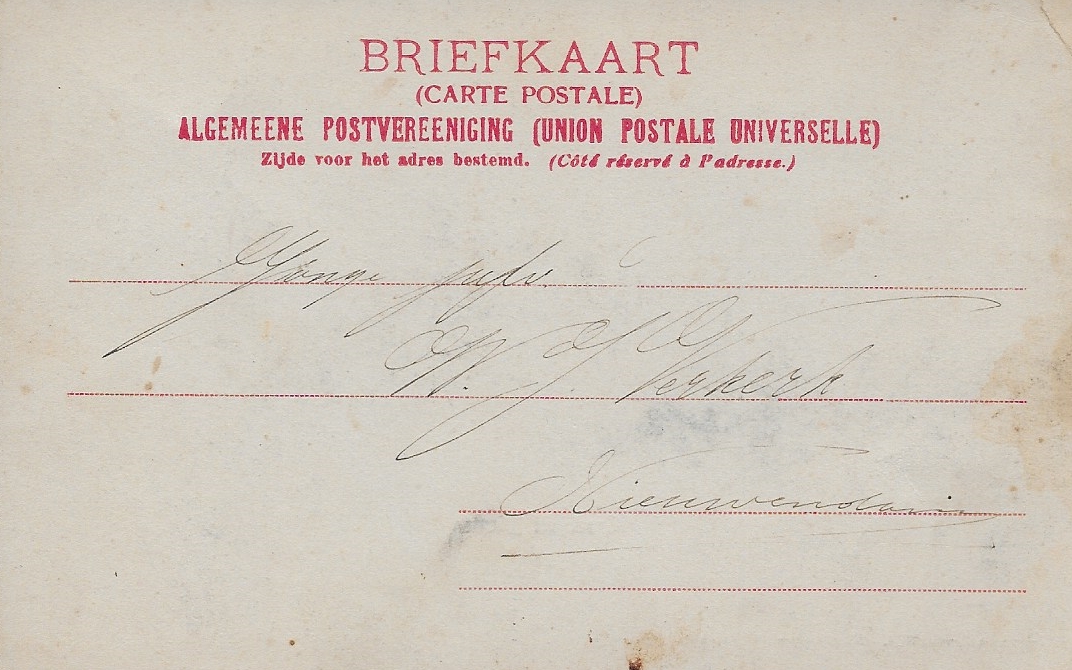 BRIEFKAART
(CARTE POSTALE)
ALGEMEENE POSTVEREENIGING (UNION POSTALE UNIVERSELLE)
Zijde voor het adres bestemd. (Côté réservé à l'adresse.)
J. Verkerk
Nieuwendam